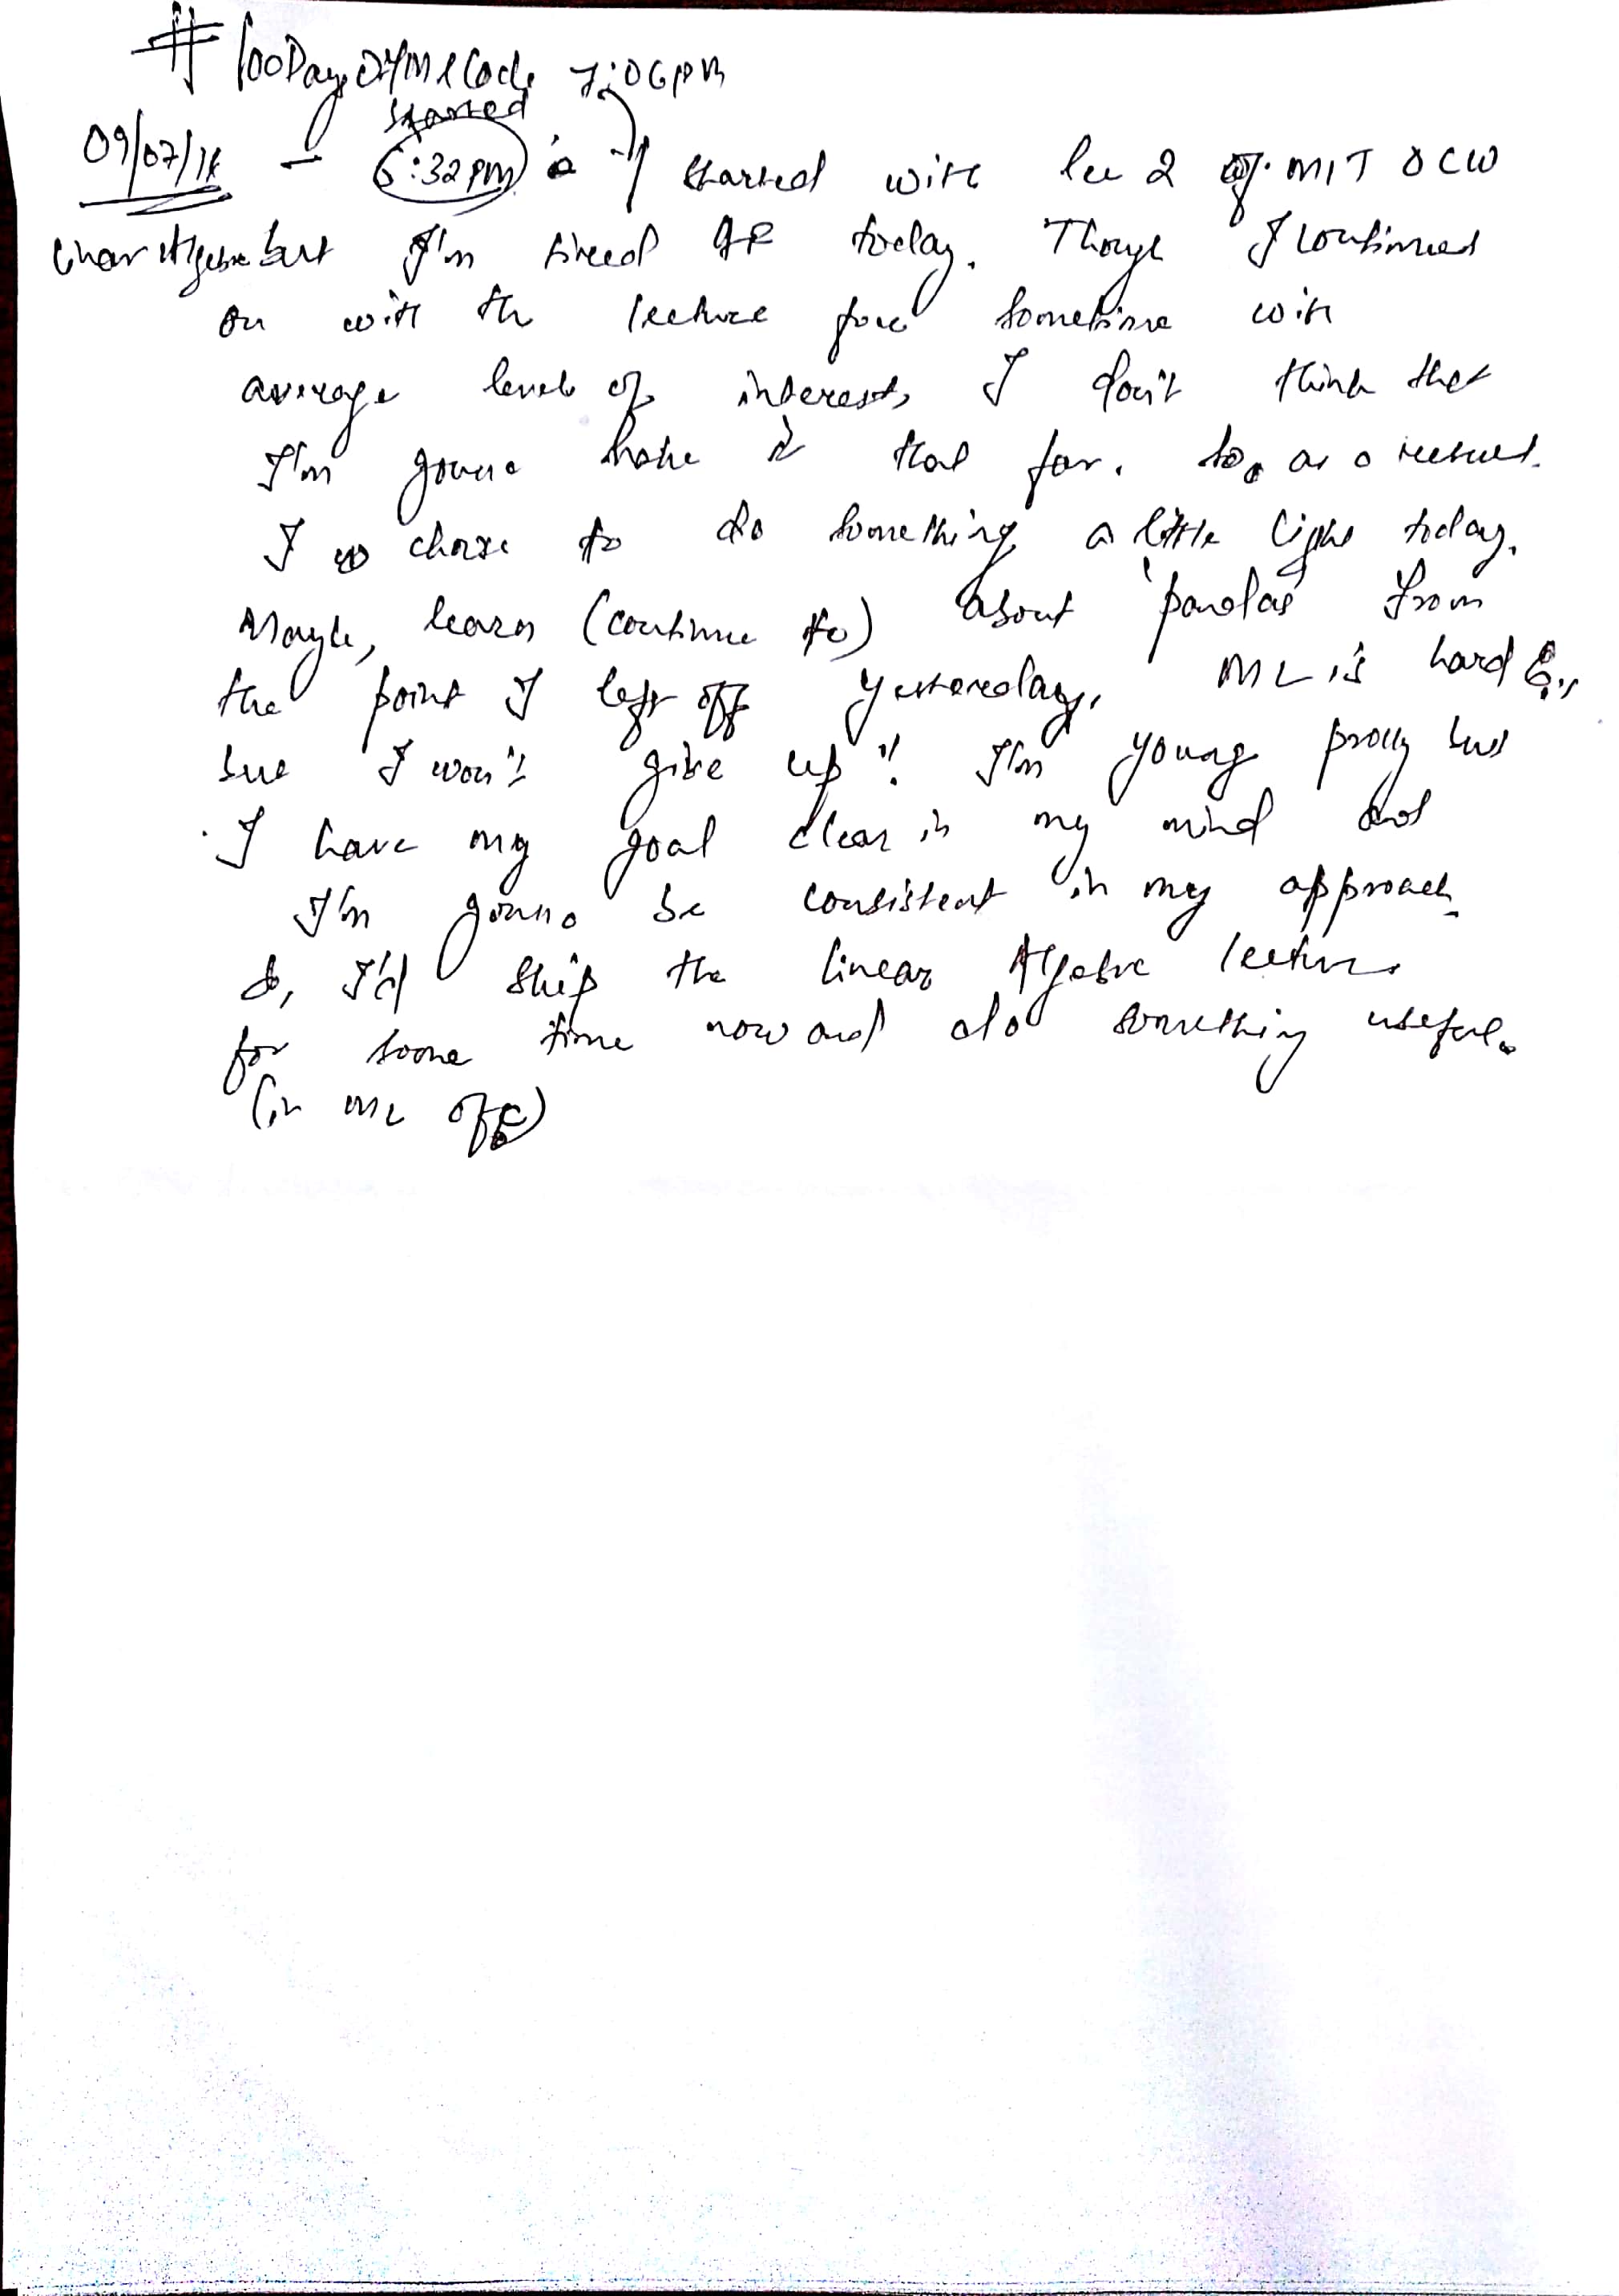 #100DaysOfMLCode 7:06pm
started
09/07/18 — 6:32pm I started with lec 2 of MIT OCW
linear Algebra but I'm tired AF today. Though I continued
on with the lecture for sometime with
average level of interest, I don't think that
I'm gonna make it that far. So, as a result.
I chose to do something a little light today.
Maybe, learn (continue to) about 'pandas' from
the point I left off yesterday. ML is hard &
but I won't give up"! I'm young prolly but
I have my goal clear in my mind and
I'm gonna be consistent in my approach.
So, I'd skip the linear Algebra lecture
for some time now and do something useful.
(in ML ofc)